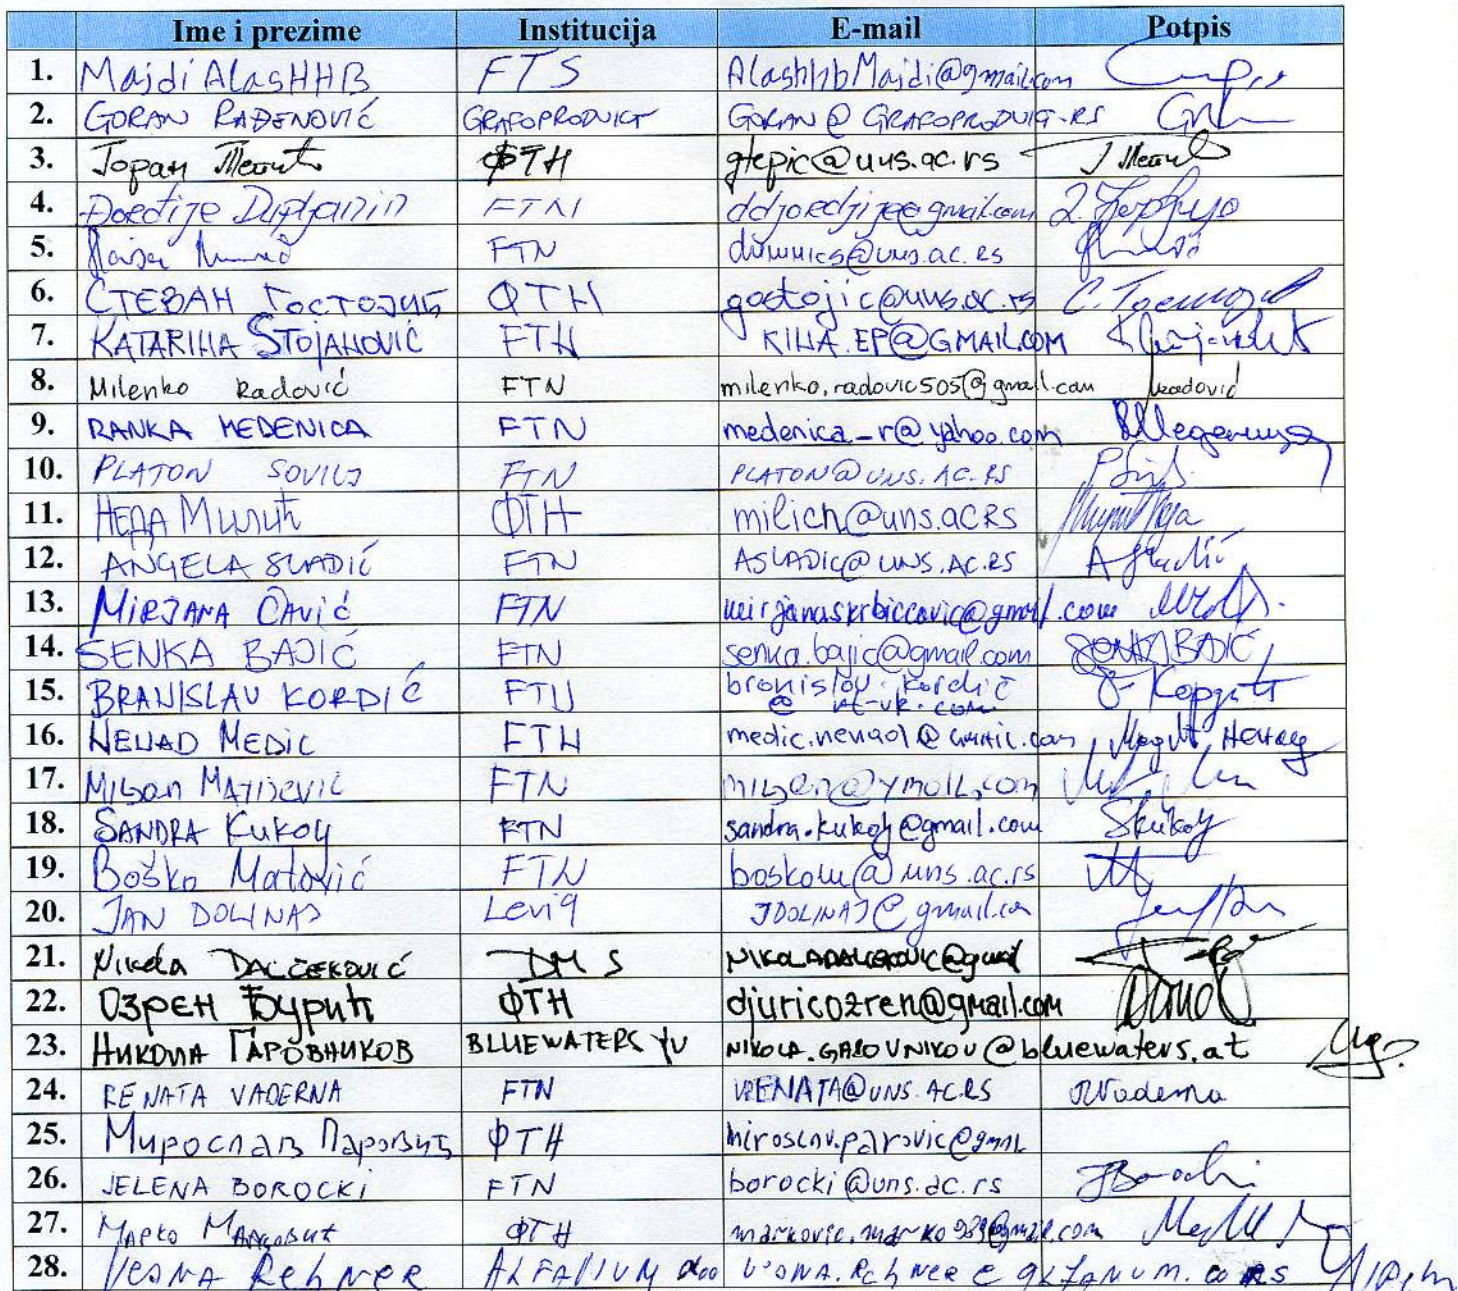 Ime i prezime Institucija E-mail Potpis
1. Majdi AlasHHB FTS AlashhbMajdi@gmail.com
2. GORAN RAĐENOVIĆ GRAFOPRODUKT GORAN@GRAFOPRODUKT.RS
3. Горан Тепић ФТН gtepic@uns.ac.rs
4. Đorđije FTN
5. FTN
6. СТЕВАН Гостојић ФТН gostojic@uns.ac.rs С. Гостојић
7. KATARINA STOJANOVIĆ FTN KINA.EP@GMAIL.COM
8. Milenko Radović FTN milenko.radovic505@gmail.com Mradović
9. RANKA MEDENICA FTN medenica_r@yahoo.com
10. PLATON SOVILJ FTN PLATON@UNS.AC.RS
11. НЕДА Милић ФТН milich@uns.ac.rs
12. ANGELA SLADIĆ FTN ASLADIC@UNS.AC.RS A Sladić
13. MIRJANA ČAVIĆ FTN mirjanaskrbiccavic@gmail.com
14. SENKA BAJIĆ FTN senka.bajic@gmail.com SENKA BAJIĆ
15. BRANISLAV KORDIĆ FTN branislav.kordic
@rt-rk.com Б. Кордић
16. NENAD MEDIC FTN medic.nenad@gmail.com Медић Ненад
17. Milan MATIJEVIĆ FTN
18. SANDRA Kukolj FTN sandra.kukolj@gmail.com SKukolj
19. Boško Matović FTN boskom@uns.ac.rs
20. JAN DOLINAJ Levi9 JDOLINAJ@gmail.com
21. Nikola DALČEKOVIĆ DMS NIKOLADALCEKOVIC@gmail
22. Озрен Ђурић ФТН djuricozren@gmail.com
23. Никола ГАРОВНИКОВ BLUEWATERS YU NIKOLA.GAROVNIKOV@bluewaters.at
24. RENATA VADERNA FTN VRENATA@UNS.AC.RS RVaderna
25. Мирослав Паровић ФТН miroslav.parovic@gmail
26. JELENA BOROCKI FTN borocki@uns.ac.rs JBorocki
27. Марко Марковић ФТН
28. VESNA Rehner ALFANUM doo VESNA.Rehner@ALFANUM.co.rs